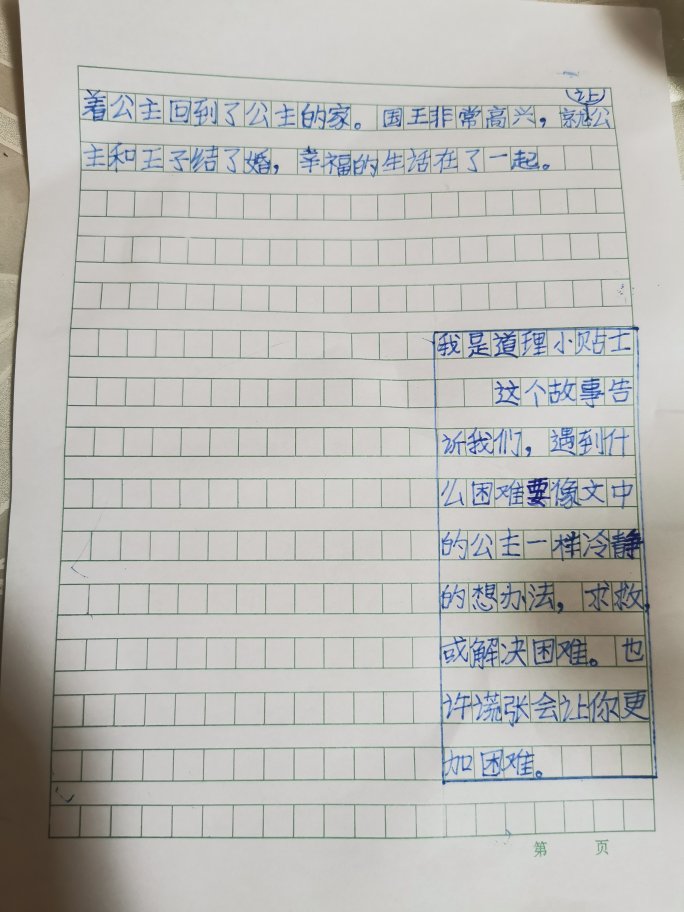 着公主回到了公主的家。国王非常高兴，就让公
主和王子结了婚，幸福的生活在了一起。
我是道理小贴士
这个故事告
诉我们，遇到什
么困难要像文中
的公主一样冷静
的想办法，求救，
或解决困难。也
许谎张会让你更
加困难。
第 页